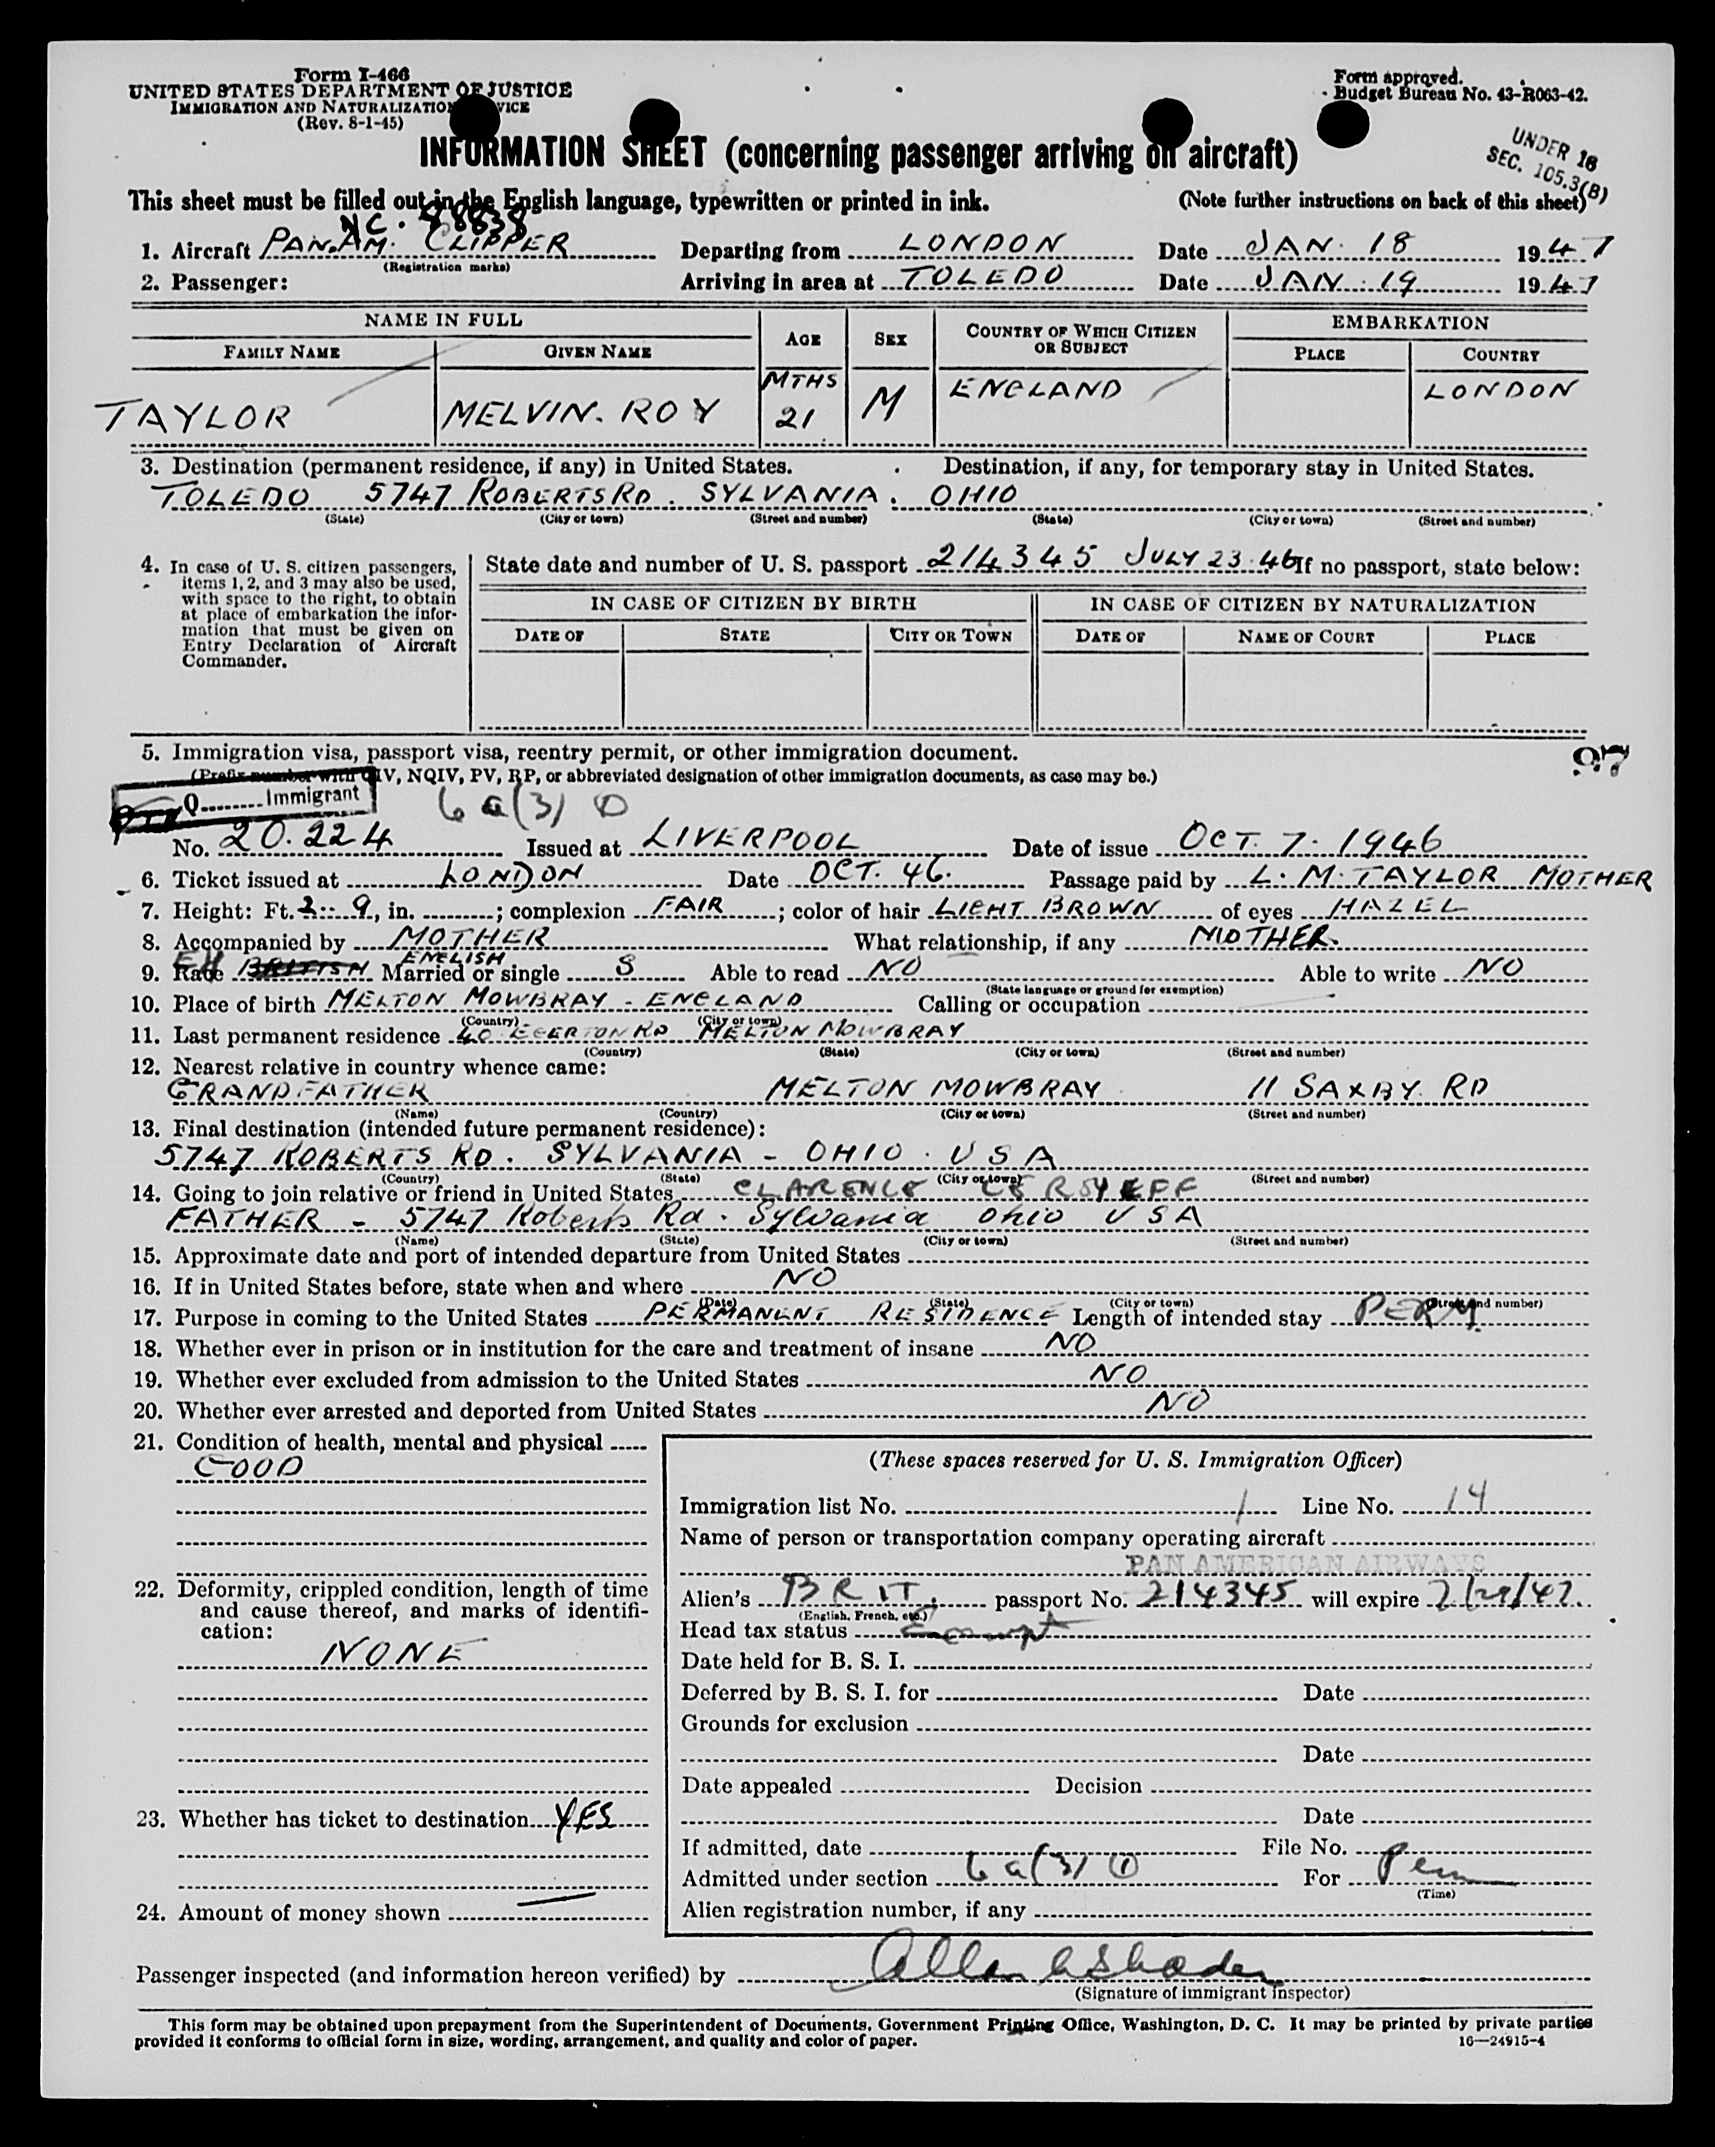 Form I-466
UNITED STATES DEPARTMENT OF JUSTICE
IMMIGRATION AND NATURALIZATION SERVICE
(Rev. 8-1-45)
Form approved.
Budget Bureau No. 43-R063-42.
UNDER 16
SEC. 105.3(B)
INFORMATION SHEET (concerning passenger arriving on aircraft)
This sheet must be filled out in the English language, typewritten or printed in ink. (Note further instructions on back of this sheet)
NC. 88838
1. Aircraft PAN.AM. CLIPPER Departing from LONDON Date JAN. 18 1947
(Registration marks)
2. Passenger: Arriving in area at TOLEDO Date JAN. 19 1947
NAME IN FULL AGE SEX COUNTRY OF WHICH CITIZEN OR SUBJECT EMBARKATION
FAMILY NAME GIVEN NAME PLACE COUNTRY
TAYLOR MELVIN. ROY MTHS 21 M ENGLAND LONDON
3. Destination (permanent residence, if any) in United States. Destination, if any, for temporary stay in United States.
TOLEDO 5747 ROBERTS RD. SYLVANIA. OHIO
(State) (City or town) (Street and number) (State) (City or town) (Street and number)
4. In case of U. S. citizen passengers, items 1, 2, and 3 may also be used, with space to the right, to obtain at place of embarkation the information that must be given on Entry Declaration of Aircraft Commander.
State date and number of U. S. passport 214345 JULY 23.46 If no passport, state below:
IN CASE OF CITIZEN BY BIRTH IN CASE OF CITIZEN BY NATURALIZATION
DATE OF STATE CITY OR TOWN DATE OF NAME OF COURT PLACE
5. Immigration visa, passport visa, reentry permit, or other immigration document.
97
(Prefix number with QIV, NQIV, PV, RP, or abbreviated designation of other immigration documents, as case may be.)
Q........ Immigrant 6a(3) O
No. 20.224 Issued at LIVERPOOL Date of issue OCT. 7. 1946
6. Ticket issued at LONDON Date OCT. 46. Passage paid by L. M. TAYLOR MOTHER
7. Height: Ft. 2 - 9, in. ; complexion FAIR ; color of hair LIGHT BROWN of eyes HAZEL
8. Accompanied by MOTHER What relationship, if any MOTHER.
9. Race BRITISH ENGLISH Married or single S Able to read NO Able to write NO
(State language or ground for exemption)
10. Place of birth MELTON MOWBRAY - ENGLAND Calling or occupation
(Country) (City or town)
11. Last permanent residence 40 EGERTON RD MELTON MOWBRAY
(Country) (State) (City or town) (Street and number)
12. Nearest relative in country whence came:
GRANDFATHER MELTON MOWBRAY 11 SAXBY. RD
(Name) (Country) (City or town) (Street and number)
13. Final destination (intended future permanent residence):
5747 ROBERTS RD. SYLVANIA - OHIO. USA
(Country) (State) (City or town) (Street and number)
14. Going to join relative or friend in United States CLARENCE LEROY EFF
FATHER - 5747 Roberts Rd. Sylvania Ohio USA
(Name) (State) (City or town) (Street and number)
15. Approximate date and port of intended departure from United States
16. If in United States before, state when and where NO
(Date) (State) (City or town) (Street and number)
17. Purpose in coming to the United States PERMANENT RESIDENCE Length of intended stay PERM.
18. Whether ever in prison or in institution for the care and treatment of insane NO
19. Whether ever excluded from admission to the United States NO
20. Whether ever arrested and deported from United States NO
21. Condition of health, mental and physical
GOOD
22. Deformity, crippled condition, length of time and cause thereof, and marks of identification:
NONE
23. Whether has ticket to destination YES
24. Amount of money shown —
(These spaces reserved for U. S. Immigration Officer)
Immigration list No. 1 Line No. 14
Name of person or transportation company operating aircraft
PAN AMERICAN AIRWAYS
Alien's BRIT. passport No. 214345 will expire 7/29/47.
(English, French, etc.)
Head tax status Exempt
Date held for B. S. I.
Deferred by B. S. I. for Date
Grounds for exclusion
Date
Date appealed Decision
Date
If admitted, date File No.
Admitted under section 6a(3) O For Perm
(Time)
Alien registration number, if any
Passenger inspected (and information hereon verified) by
(Signature of immigrant inspector)
This form may be obtained upon prepayment from the Superintendent of Documents, Government Printing Office, Washington, D. C. It may be printed by private parties
provided it conforms to official form in size, wording, arrangement, and quality and color of paper. 16—24915-4